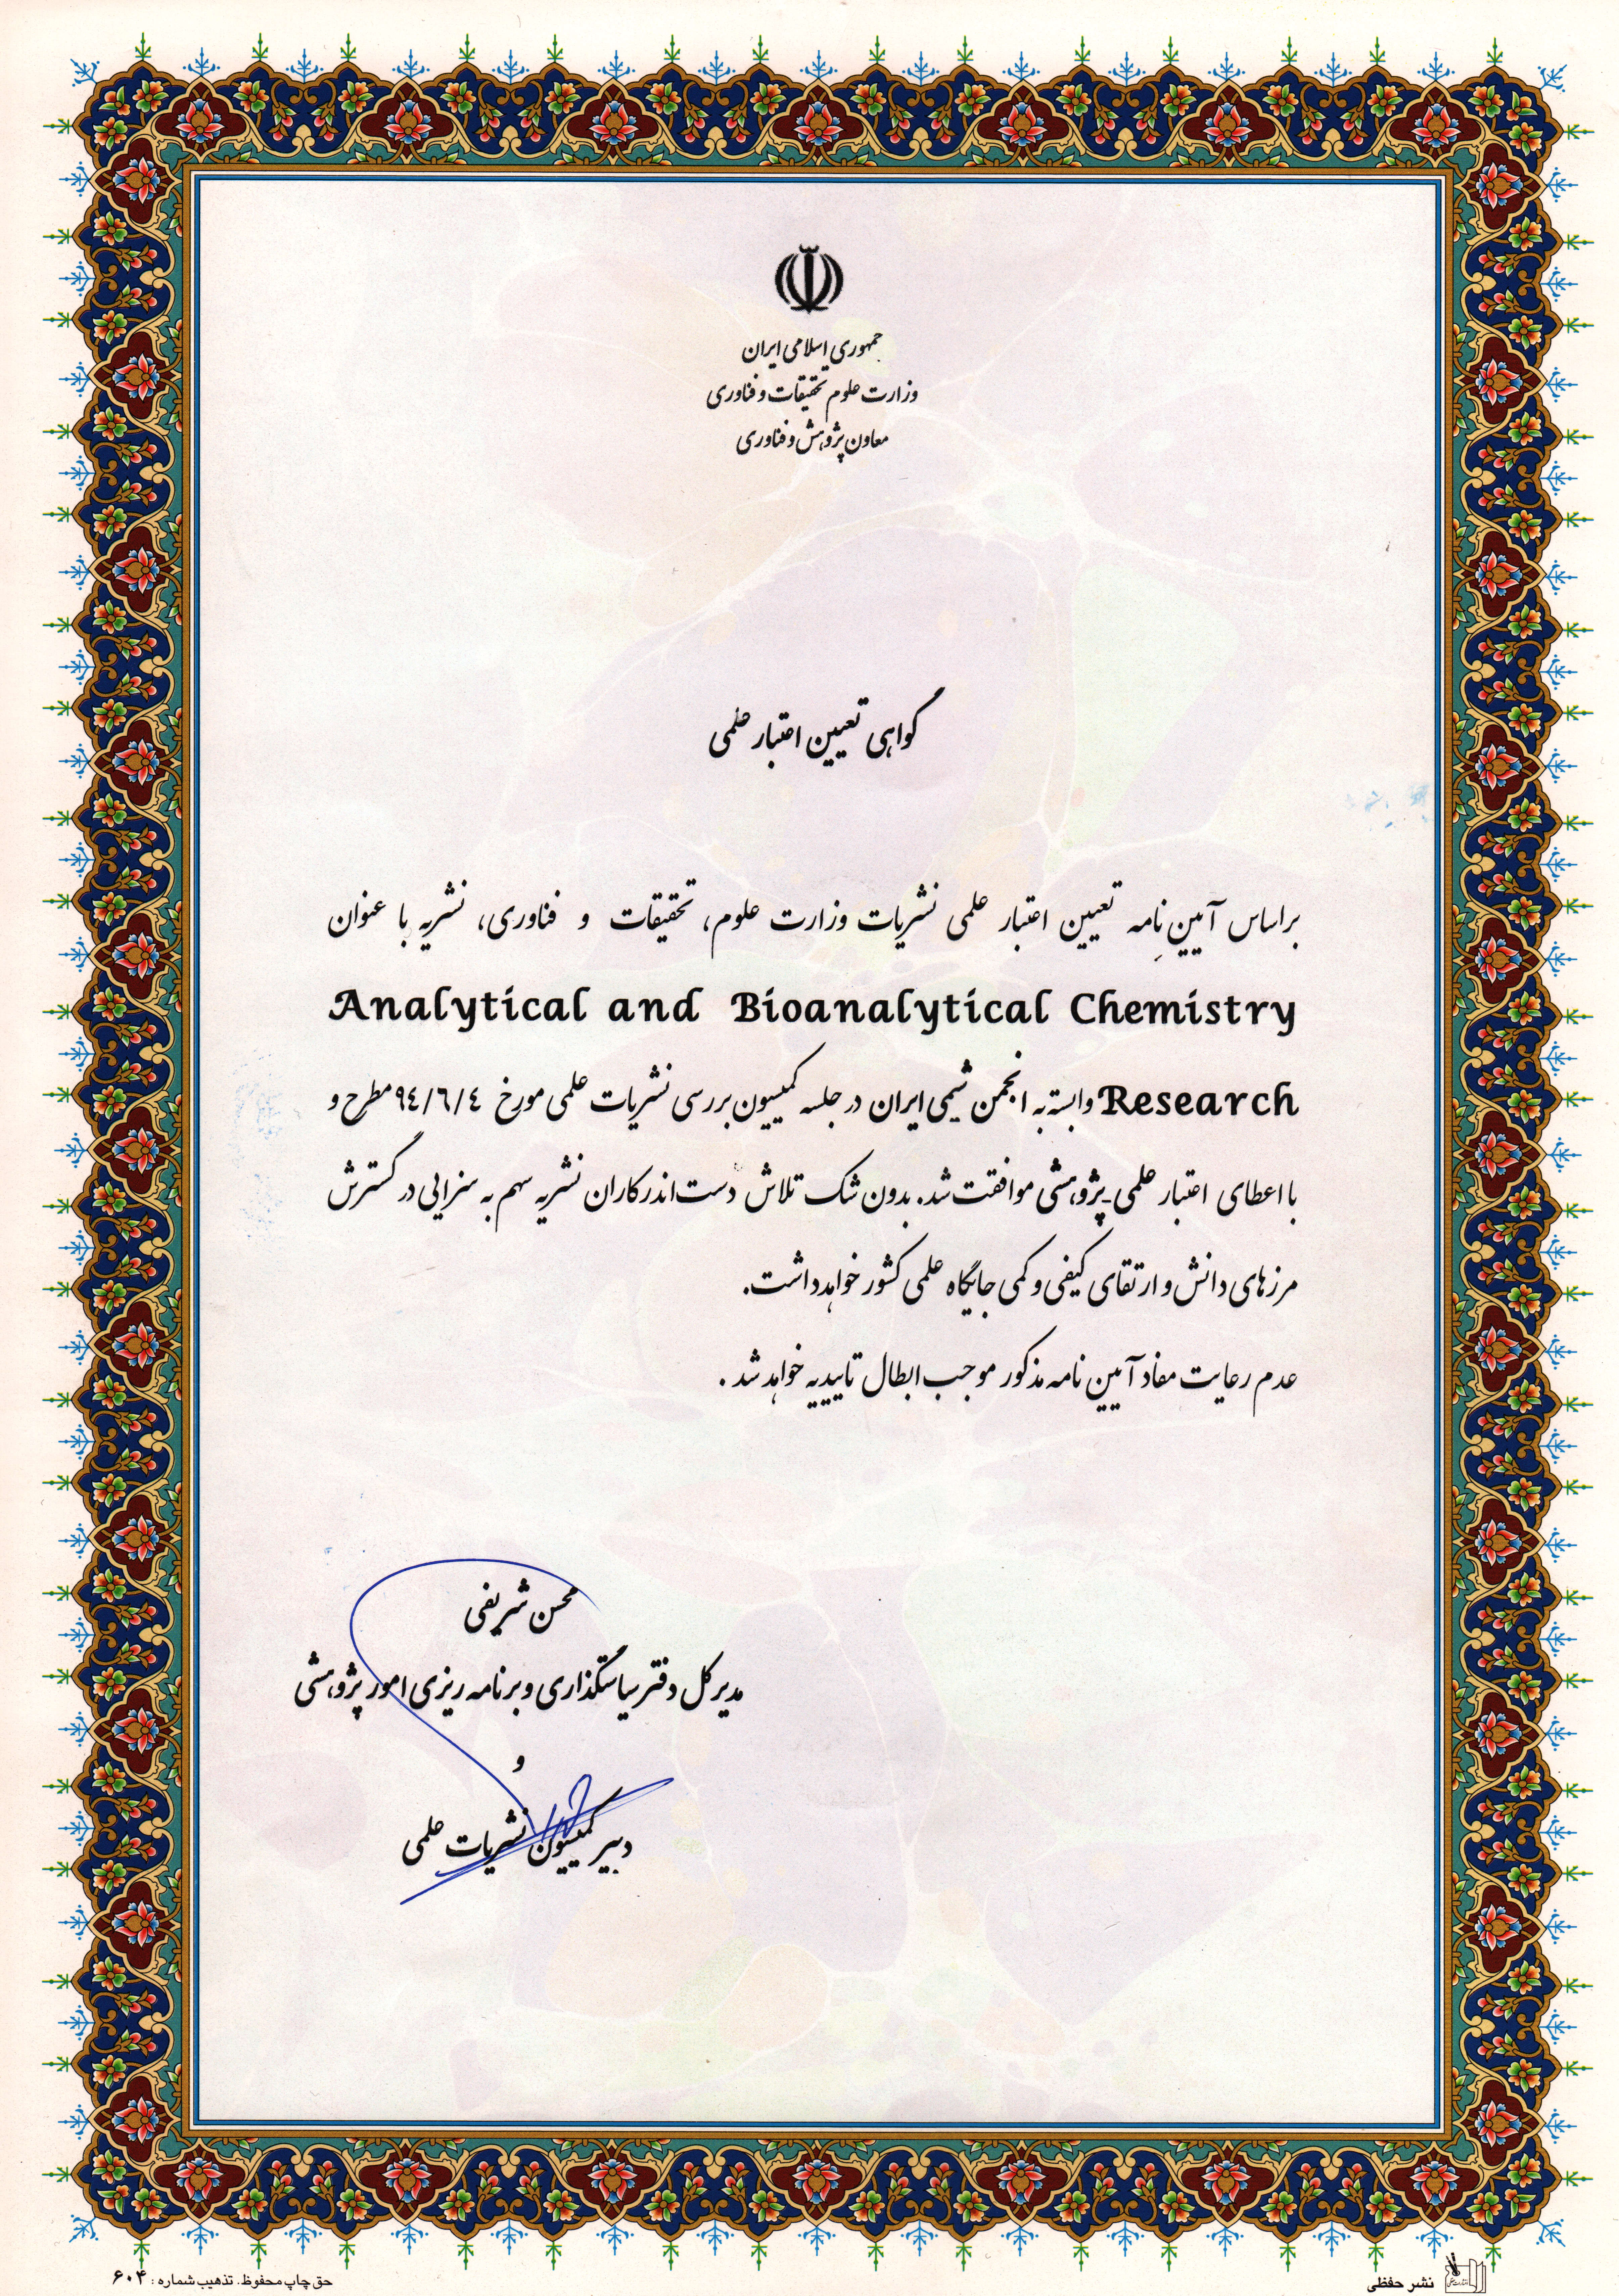 جمهوری اسلامی ایران
وزارت علوم تحقیقات و فناوری
معاون پژوهش و فناوری
گواهی تعیین اعتبار علمی
براساس آیین نامه تعیین اعتبار علمی نشریات وزارت علوم، تحقیقات و فناوری، نشریه با عنوان
Analytical and Bioanalytical Chemistry
Research وابسته به انجمن شیمی ایران در جلسه کمیسیون بررسی نشریات علمی مورخ ٩٤/٦/٤ مطرح و
با اعطای اعتبار علمی-پژوهشی موافقت شد. بدون شک تلاش دست اندرکاران نشریه سهم به سزایی در گسترش
مرزهای دانش و ارتقای کیفی و کمی جایگاه علمی کشور خواهد داشت.
عدم رعایت مفاد آیین نامه مذکور موجب ابطال تاییدیه خواهد شد.
محسن شریفی
مدیرکل دفتر سیاستگذاری و برنامه ریزی امور پژوهشی
و
دبیر کمیسیون نشریات علمی
نشر حفظی
حق چاپ محفوظ. تذهیب شماره: ۶۰۴